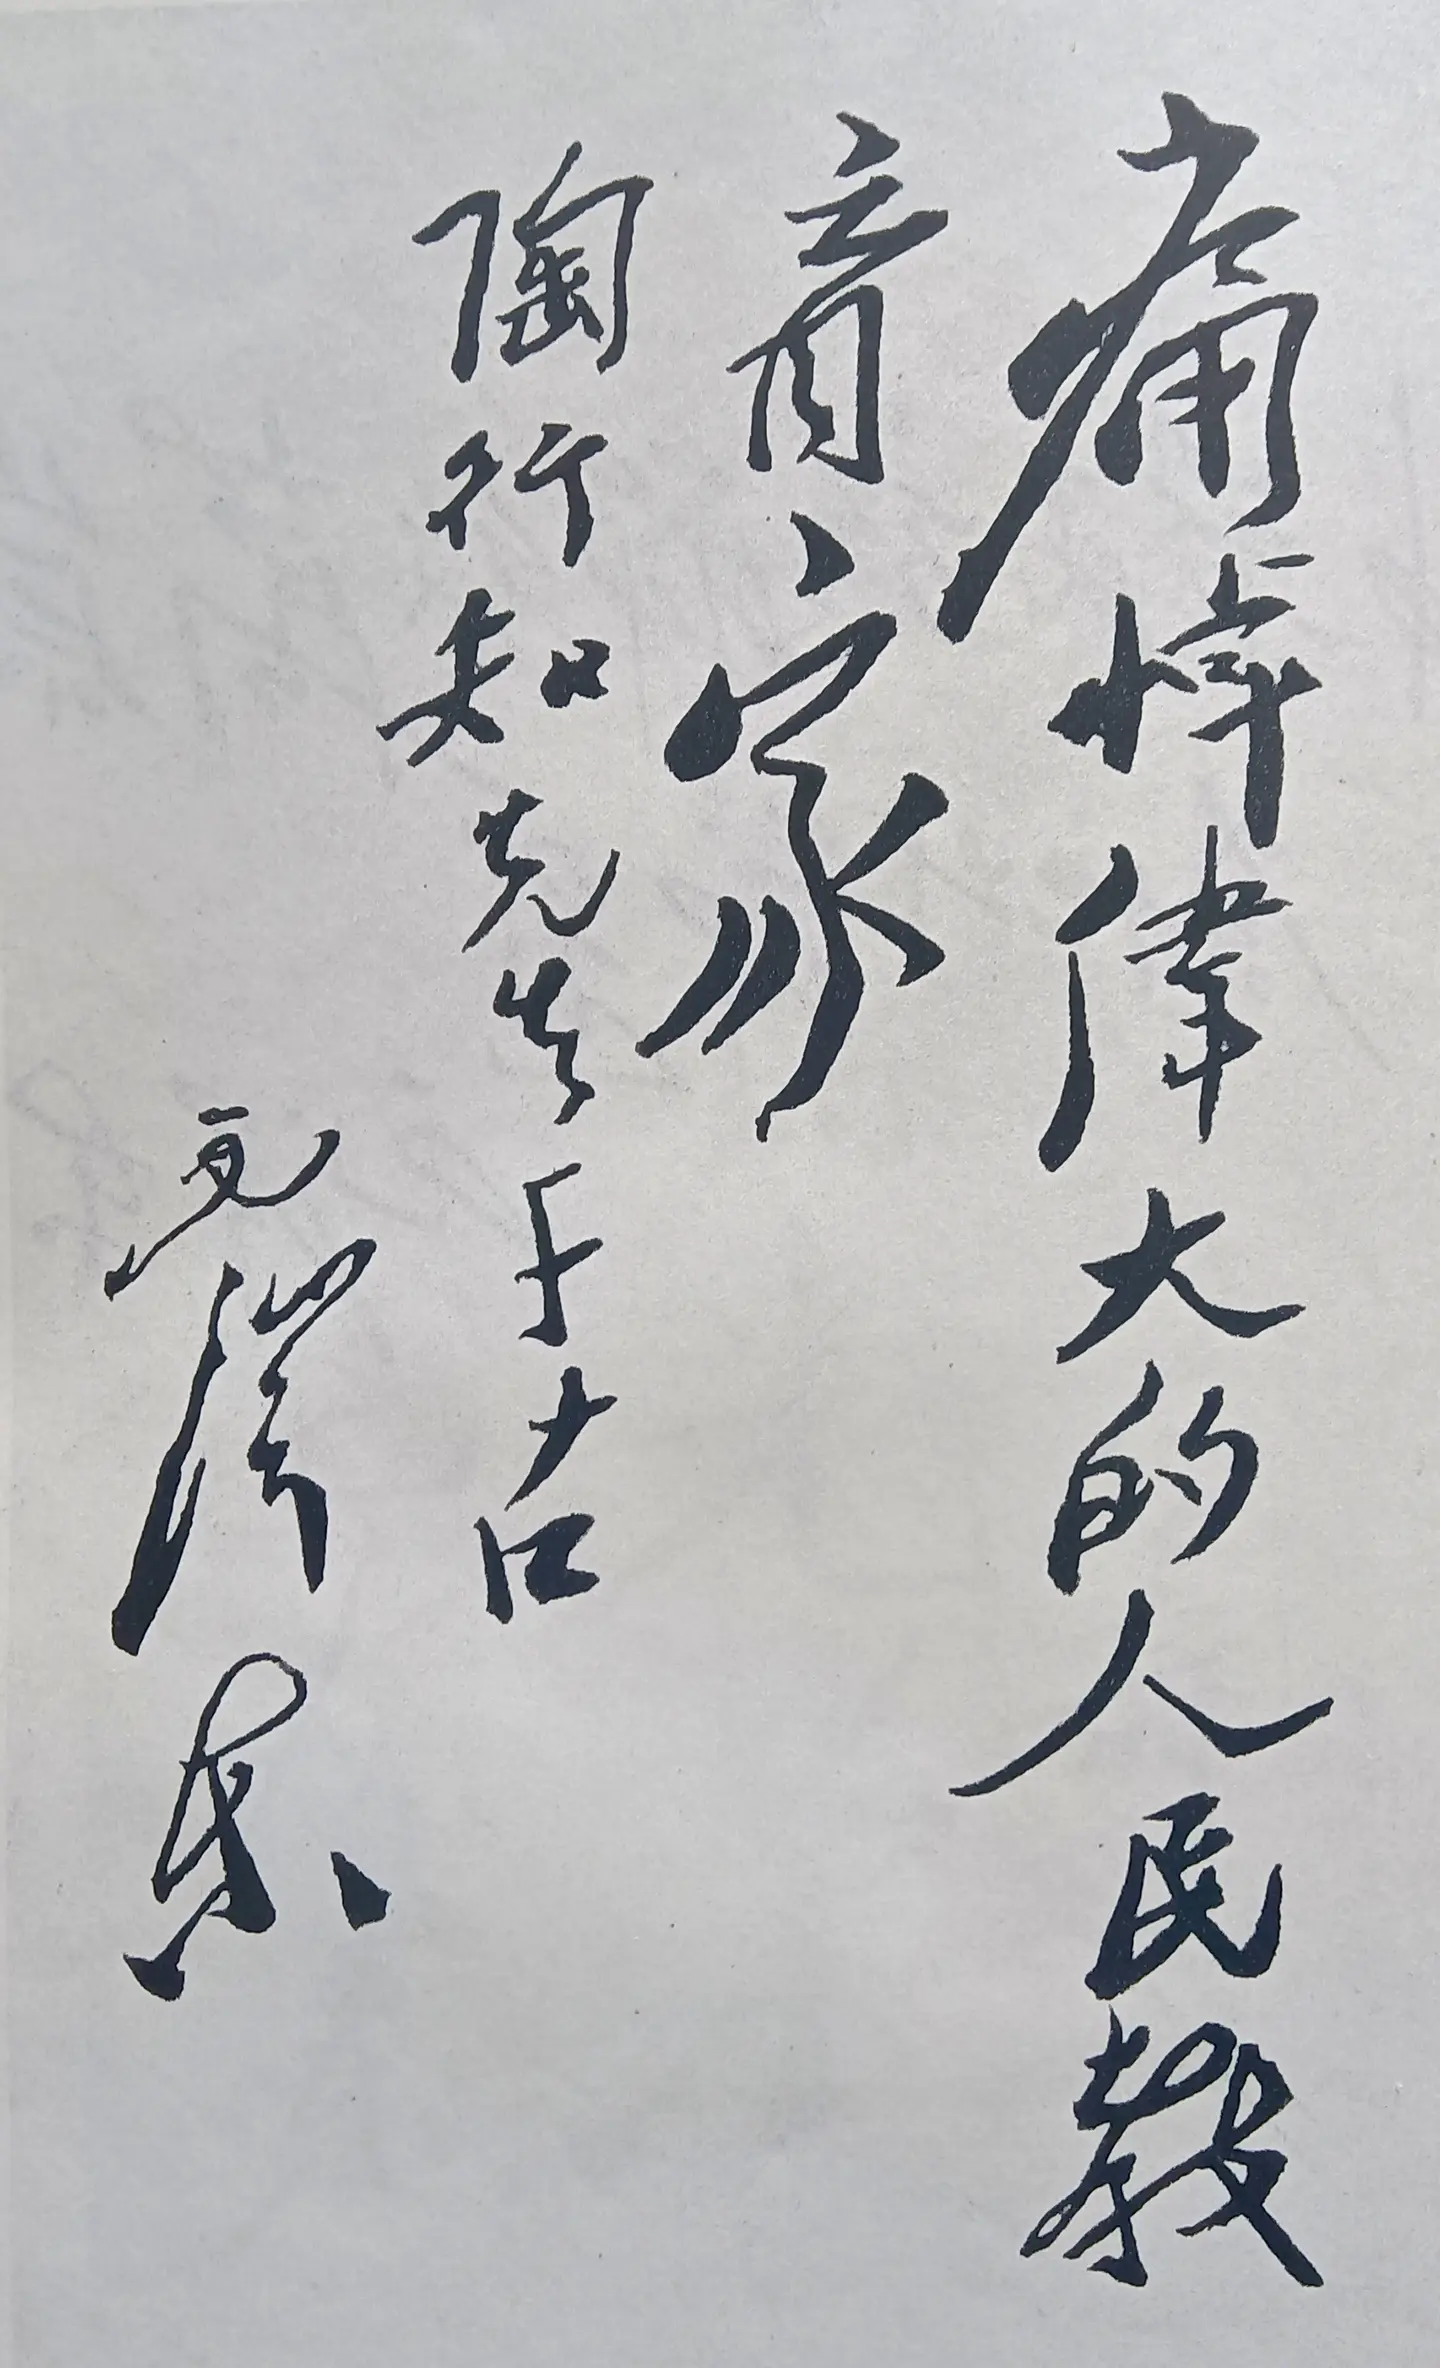 痛悼偉大的人民教
育家、
陶行知先生千古
毛澤东